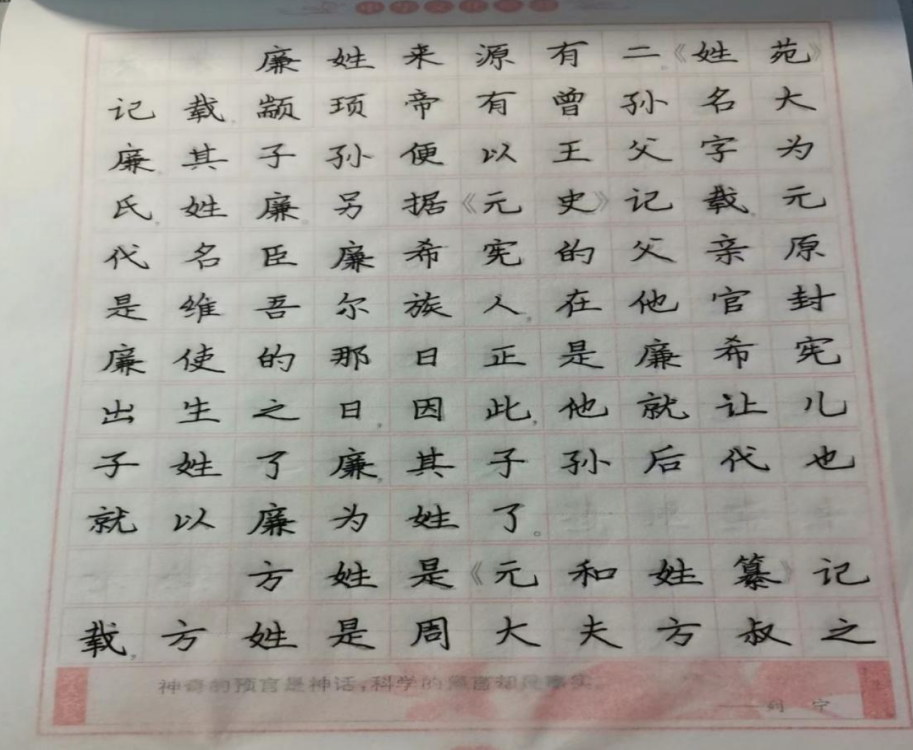 廉姓来源有二《姓苑》
记载,颛顼帝有曾孙名大
廉,其子孙便以王父字为
氏,姓廉.另据《元史》记载,元
代名臣廉希宪的父亲原
是维吾尔族人。在他官封
廉使的那日正是廉希宪
出生之日,因此,他就让儿
子姓了廉,其子孙后代也
就以廉为姓了。
方姓是《元和姓纂》记
载,方姓是周大夫方叔之
神奇的预言是神话,科学的预言却是事实。
——列 宁